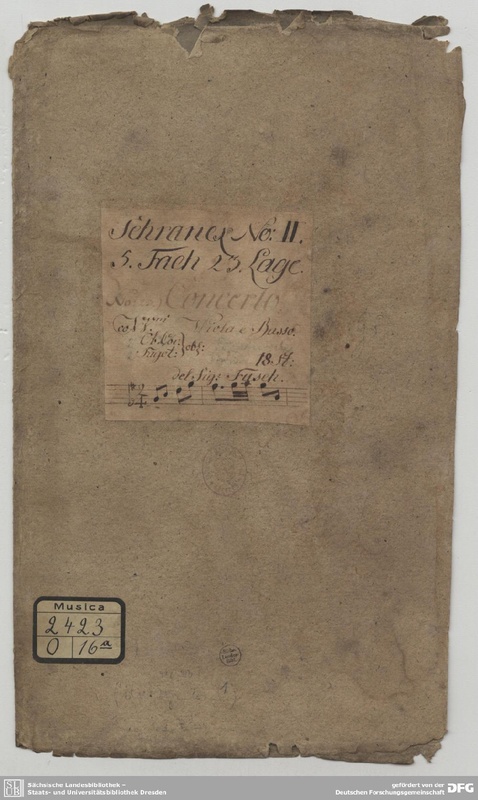 Schranck No: II.
5. Fach 23. Lage.
Concerto
co VVni Viola e Basso.
2 Oboi:
2 Fagot: obl:
18 St:
del Sigr Fasch.
Musica
2423
O 16a
SLUB
Sächsische Landesbibliothek –
Staats- und Universitätsbibliothek Dresden
gefördert von der
Deutschen Forschungsgemeinschaft
DFG